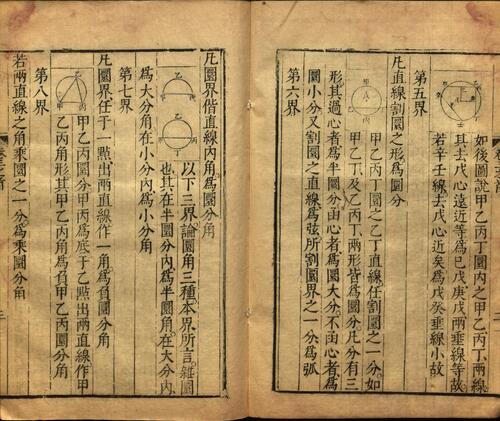 如後圖說甲乙丙丁圜內之甲乙丙丁兩線
其去戊心遠近等為己戊庚戊兩垂線等故
若辛壬線去戊心近矣為戊癸垂線小故
第五界
凡直線割圜之形為圜分
甲乙丙丁圜之乙丁直線任割圜之一分如
甲乙丁及乙丙丁兩形皆為圜分凡分有三
形其過心者為半圜分函心者為圜大分不函心者為
圜小分又割圜之直線為弦所割圜界之一分為弧
第六界
凡圜界偕直線內角為圜分角
以下三界論圜角三種本界所言雜圜
也其在半圜分內為半圜角在大分內
為大分角在小分內為小分角
第七界
凡圜界任于一點出兩直線作一角為負圜分角
甲乙丙圜分甲丙為底于乙點出兩直線作甲
乙丙角形其甲乙丙角為負甲乙丙圜分角
第八界
若兩直線之角乘圜之一分為乘圜分角